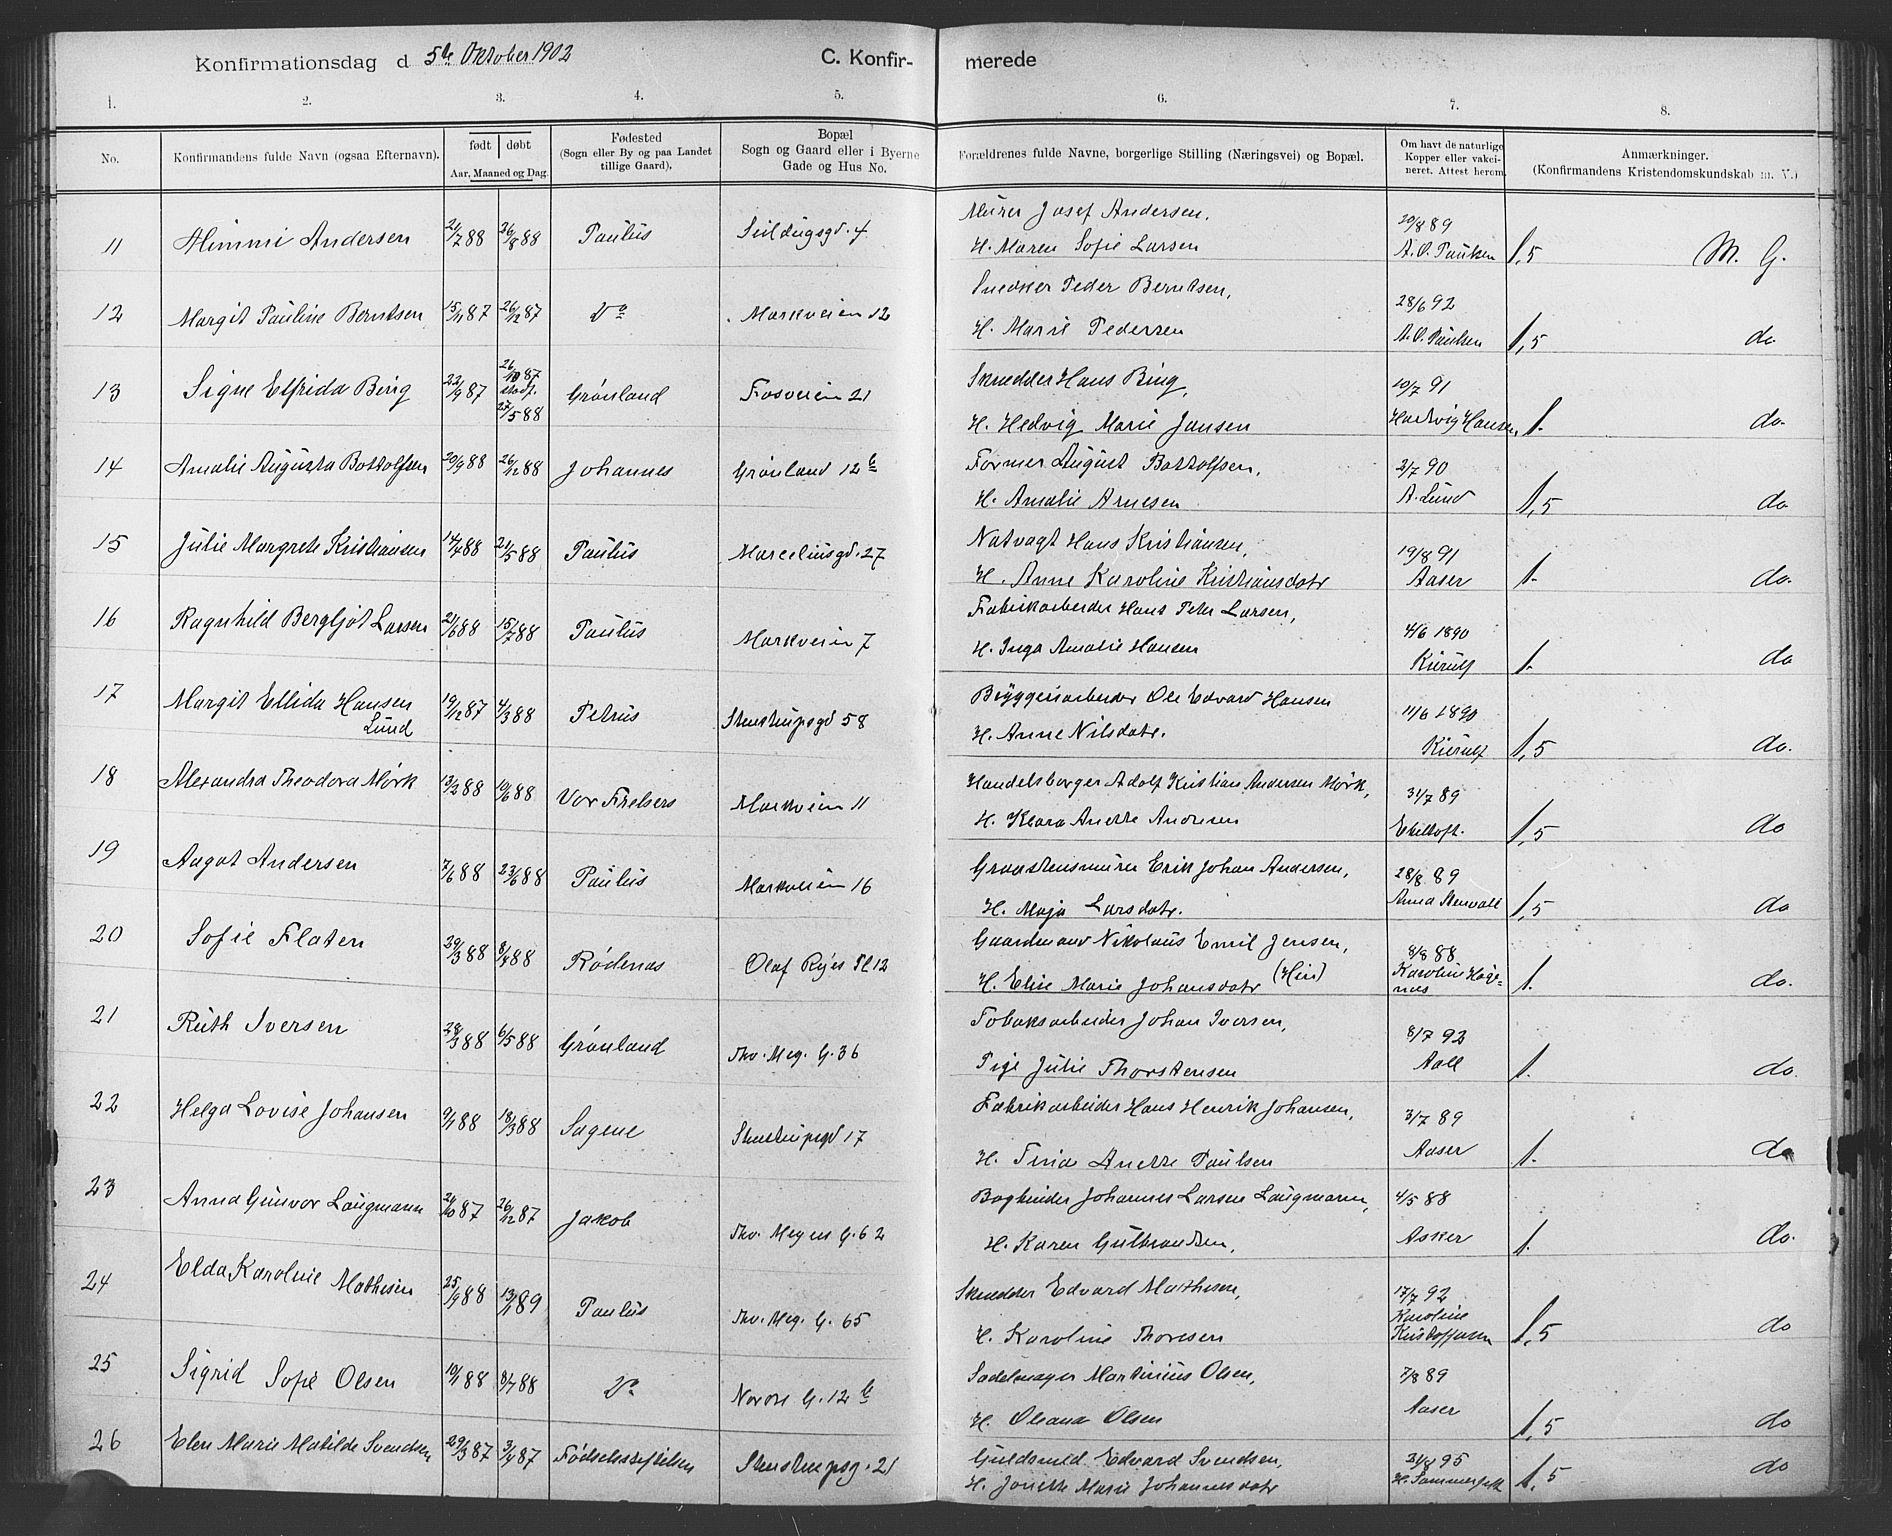 Konfirmationsdag d 5te Oktober 1902 C. Konfir- merede
1. 2. 3. 4. 5. 6. 7. 8.
No.
Konfirmandens fulde Navn (ogsaa Efternavn).
født døbt
Aar, Maaned og Dag.
Fødested
(Sogn eller By og paa Landet
tillige Gaard).
Bopæl
Sogn og Gaard eller i Byerne
Gade og Hus No.
Forældrenes fulde Navne, borgerlige Stilling (Næringsvei) og Bopæl.
Om havt de naturlige
Kopper eller vakci-
neret. Attest herom
Anmærkninger.
(Konfirmandens Kristendomskundskab m. V.)
11 Himmi Andersen 21/7 88 26/8 88 Paulus Seildugsgd. 4
Murer Josef Andersen,
H. Maren Sofie Larsen
20/8 89
A.O. Paulsen 1,5 M. G.
12 Margit Pauline Berntsen 15/11 87 26/12 87 Do Markveien 12
Snedker Peder Berntsen,
H. Marie Pedersen
28/6 92
A.O. Paulsen 1,5 do
13 Signe Elfrida Bing 22/9 87 26/10 87
stadf.
27/5 88 Grønland Fosveien 21
Skrædder Hans Bing,
H. Hedvig Marie Jansen
10/7 91
Hartvig Hansen 1. do.
14 Amalie Augusta Bottolfsen 20/9 88 26/12 88 Johannes Grønland 12 b
Former August Bottolfsen,
H. Amalie Arnesen
2/7 90
A. Lund 1,5 do
15 Julie Margrete Kristiansen 14/4 88 21/5 88 Paulus Marceliusgd. 27
Natvagt Hans Kristiansen,
H. Anne Karoline Kristiansdatr
19/8 91
Aaser 1. do.
16 Ragnhild Bergljot Larsen 21/6 88 15/7 88 Paulus Markveien 7
Fabrikarbeider Hans Petr Larsen,
H. Inga Amalie Hansen
4/6 1890
Kierulf 1. do
17 Margit Ellida Hansen
Lund 19/12 87 4/3 88 Petrus Stenstrupsgd 58
Bryggeriarbeider Ole Edvard Hansen
H. Anne Nilsdatr.
11/6 1890
Kierulf 1,5 do.
18 Alexandra Theodora Mörk 13/2 88 10/6 88 Vor Frelsers Markveien 11
Handelsborger Adolf Kristian Andersen Mörk,
H. Klara Anette Andresen
31/7 89
Ebeltoft. 1,5 do
19 Aagot Andersen 7/6 88 23/6 88 Paulus Markveien 16
Graastensmurer Erik Johan Andersen,
H. Maja Larsdatr.
28/8 89
Anna Stenvall 1,5 do
20 Sofie Flaten 29/3 88 8/4 88 Rødenæs Olaf Ryes Pl 12
Gaardmand Nikolaus Emil Jensen,
H. Elise Marie Johansdatr (Hin)
8/8 88
Karoline Høge-
næs 1. do.
21 Ruth Iversen 28/3 88 6/5 88 Grønland Thv. Mey. G. 36
Tobaksarbeider Johan Iversen,
Pige Julie Thorstensen
8/7 92
Aall 1. do.
22 Helga Lovise Johansen 9/1 88 18/3 88 Sagene Stenstrupsgd 17
Fabrikarbeider Hans Henrik Johansen,
H. Tina Anette Paulsen
3/7 89
Aaser 1. do
23 Anna Gunvor Laugmann 24/10 87 26/12 87 Jakob Thv. Meyers G. 62
Bogbinder Johannes Larsen Laugmann,
H. Karen Gulbrandsen,
4/5 88
Asker 1. do.
24 Elda Karoline Mathisen 25/9 88 13/1 89 Paulus Thv. Mey. G. 65
Skrædder Edvard Mathisen,
H. Karoline Thoresen
17/7 92
Karoline
Kristoffersen 1,5 do
25 Sigrid Sofie Olsen 10/1 88 8/4 88 Do Nordre G. 12 b
Sadelmager Martinius Olsen,
H. Oleana Olsen
7/8 89
Aaser 1,5 do
26 Elen Marie Matilde Svendsen 29/3 87 3/4 87 Fødselsstiftelsen Stenstrupsg. 21
Guldsmed Edvard Svendsen,
H. Jonette Marie Johannesdatr
31/8 95
H. Sommerfelt 1,5 do